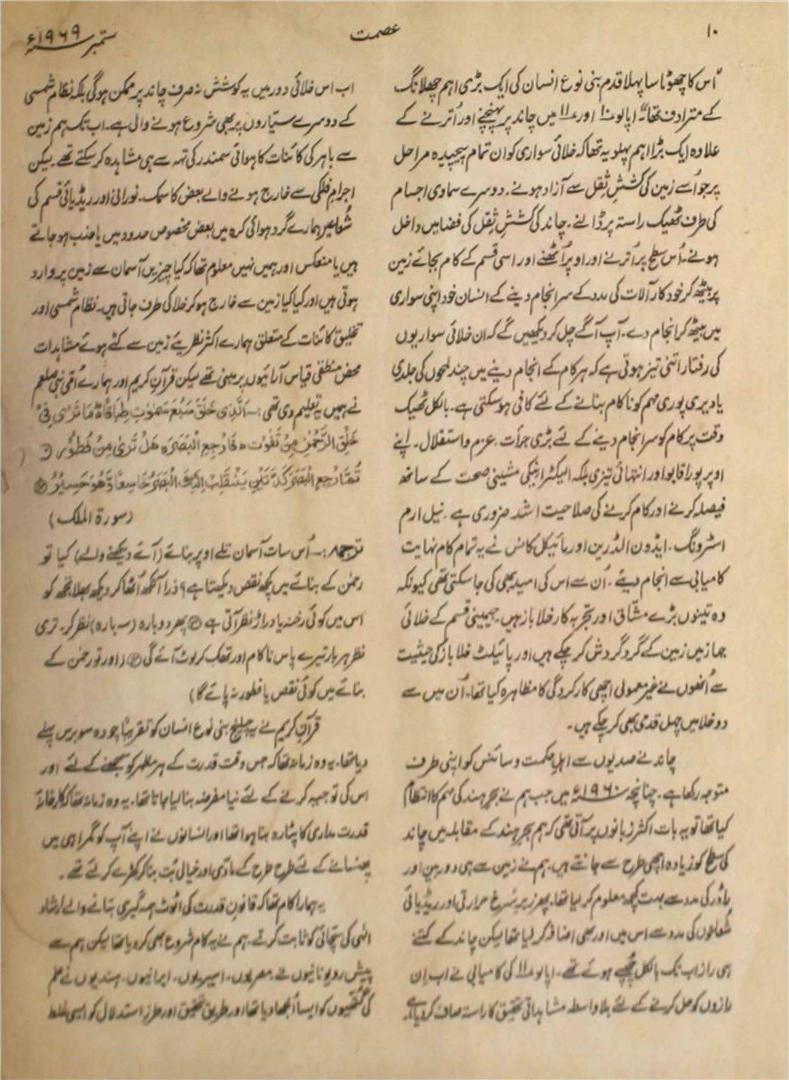 ۱۰
عصمت
ستمبر ۱۹۶۹ء
"اس کا چھوٹا سا پہلا قدم بنی نوع انسان کی ایک بڑی اہم چھلانگ
کے مترادف تھا" اپالو ۱۰ اور ۱۱ میں چاند پر پہنچنے اور اُترنے کے
علاوہ ایک بڑا اہم پہلو یہ تھا کہ خلائی سواری کو ان تمام پیچیدہ مراحل
پر جو اُسے زمین کی کششِ ثقل سے آزاد ہونے۔ دوسرے سماوی اجسام
کی طرف ٹھیک راستہ پر ڈالنے۔ چاند کی کششِ ثقل کی فضا میں داخل
ہونے۔ اُس سطح پر اُترنے اور اوپر اُٹھنے اور اسی قسم کے کام بجائے زمین
پر بیٹھ کر خود کار آلات کی مدد کے سرانجام دینے کے انسان خود اپنی سواری
میں بیٹھ کر انجام دے۔ آپ آگے چل کر دیکھیں گے کہ ان خلائی سواریوں
کی رفتار اتنی تیز ہوتی ہے کہ ہر کام کے انجام دینے میں چند لمحوں کی جلدی
یا دیری پوری مہم کو ناکام بنانے کے لئے کافی ہو سکتی ہے۔ بالکل ٹھیک
وقت پر کام کو سرانجام دینے کے لئے بڑی جرأت۔ عزم و استقلال۔ اپنے
اوپر پورا قابو اور انتہائی تیزی بلکہ الیکٹرانیکی مشینی صحت کے ساتھ
فیصلہ کرنے اور کام کرنے کی صلاحیت اشد ضروری ہے۔ نیل ارم
اسٹرونگ۔ ایڈون الڈرین اور مائیکل کالنس نے یہ تمام کام نہایت
کامیابی سے انجام دیئے۔ اُن سے اس کی امید بھی کی جا سکتی تھی کیونکہ
وہ تینوں بڑے مشاق اور تجربہ کار خلا باز ہیں۔ جیمینی قسم کے خلائی
جہاز میں زمین کے گرد گردش کر چکے ہیں اور پائیلٹ خلا باز کی حیثیت
سے اُنھوں نے غیر معمولی اچھی کارکردگی کا مظاہرہ کیا تھا۔ اُن میں سے
دو خلا میں چہل قدمی بھی کر چکے ہیں۔
چاند نے صدیوں سے اہلِ حکمت و سائنس کو اپنی طرف
متوجہ رکھا ہے۔ چنانچہ ۱۹۶۰ء میں جب ہم نے بحرِ ہند کی مہم کا انتظام
کیا تھا تو یہ بات اکثر زبانوں پر آتی تھی کہ ہم بحرِ ہند کے مقابلہ میں چاند
کی سطح کو زیادہ اچھی طرح سے جانتے ہیں۔ ہم نے زمین سے ہی دوربین اور
راڈر کی مدد سے بہت کچھ معلوم کر لیا تھا۔ پھر زیر سُرخ حرارتی اور ریڈیائی
شعاعوں کی مدد سے اس میں اور بھی اضافہ کر لیا تھا لیکن چاند کے کتنے
ہی راز اب تک بالکل چھپے ہوئے تھے۔ اپالو ۱۱ کی کامیابی نے اب ان
رازوں کو حل کرنے کے لئے بلا واسطہ مشاہداتی تحقیق کا راستہ صاف کر دیا ہے
اب اس خلائی دور میں یہ کوشش نہ صرف چاند پر ممکن ہو گی بلکہ نظام شمسی
کے دوسرے سیاروں پر بھی شروع ہونے والی ہے۔ اب تک ہم زمین
سے باہر کی کائنات کا ہوائی سمندر کی تہہ سے ہی مشاہدہ کر سکتے تھے لیکن
اجرامِ فلکی سے خارج ہونے والے بعض کاسمک۔ نورانی اور ریڈیائی قسم کی
شعاعیں ہمارے گرد ہوائی کرہ میں بعض مخصوص حدود میں یا جذب ہو جاتے
ہیں یا منعکس اور ہمیں نہیں معلوم تھا کہ کیا چیزیں آسمان سے زمین پر وارد
ہوتی ہیں اور کیا کیا زمین سے خارج ہو کر خلا کی طرف جاتی ہیں۔ نظام شمسی اور
تخلیق کائنات کے متعلق ہمارے اکثر نظریئے زمین سے کئے ہوئے مشاہدات
محض منطقی قیاس آرائیوں پر مبنی تھے لیکن قرآن کریم اور ہمارے اُمّی نبی صلعم
نے ہمیں یہ تعلیم دی تھی :۔ الَّذِی خَلَقَ سَبْعَ سَمٰوٰتٍ طِبَاقًا ؕ مَا تَرٰی فِیْ
خَلْقِ الرَّحْمٰنِ مِنْ تَفٰوُتٍ ؕ فَارْجِعِ الْبَصَرَ ۙ هَلْ تَرٰی مِنْ فُطُوْرٍ ۞
ثُمَّ ارْجِعِ الْبَصَرَ کَرَّتَیْنِ یَنْقَلِبْ اِلَیْکَ الْبَصَرُ خَاسِئًا وَّهُوَ حَسِیْرٌ ۞
(سورۃ الملک)
ترجمہ :۔ اُس سات آسمان تلے اوپر بنائے (آئے دیکھنے والے) کیا تو
رحمٰن کے بنائے میں کچھ نقص دیکھتا ہے؟ ذرا آنکھ اُٹھا کر دیکھ بھلا تجھ کو
اس میں کوئی رخنہ یا دراڑ نظر آتی ہے ۞ پھر دوبارہ (سہ بارہ) نظر کر۔ تری
نظر ہر بار تیرے پاس ناکام اور تھک کر لوٹ آئے گی ۞ (اور تو رحمٰن کے
بنائے میں کوئی نقص یا فطور نہ پائے گا)
قرآن کریم نے یہ چیلنج بنی نوع انسان کو تقریباً چودہ سو برس پہلے
دیا تھا۔ یہ وہ زمانہ تھا کہ جس وقت قدرت کے ہر مظہر کو سمجھنے کے لئے اور
اس کی توجیہہ کرنے کے لئے نیا مفروضہ بنا لیا جاتا تھا۔ یہ وہ زمانہ تھا کہ کارخانۂ
قدرت مداری کا پٹارہ بنا ہوا تھا اور انسانوں نے اپنے آپ کو گمراہی میں
پھنسانے کے لئے طرح طرح کے مادّی اور خیالی بُت بنا کر کھڑے کر لئے تھے۔
یہ ہمارا کام تھا کہ قانونِ قدرت کی اٹوٹ ہمہ گیری بتانے والے ارشاد
الٰہی کی سچائی کو ثابت کرتے۔ ہم نے یہ کام شروع بھی کر دیا تھا لیکن ہم سے
پیش رو یونانیوں نے مصریوں۔ اسیریوں۔ ایرانیوں۔ ہندیوں نے علم
کی گتھیوں کو ایسا اُلجھا دیا تھا اور طریقِ تحقیق اور طرزِ استدلال کو ایسی غلط